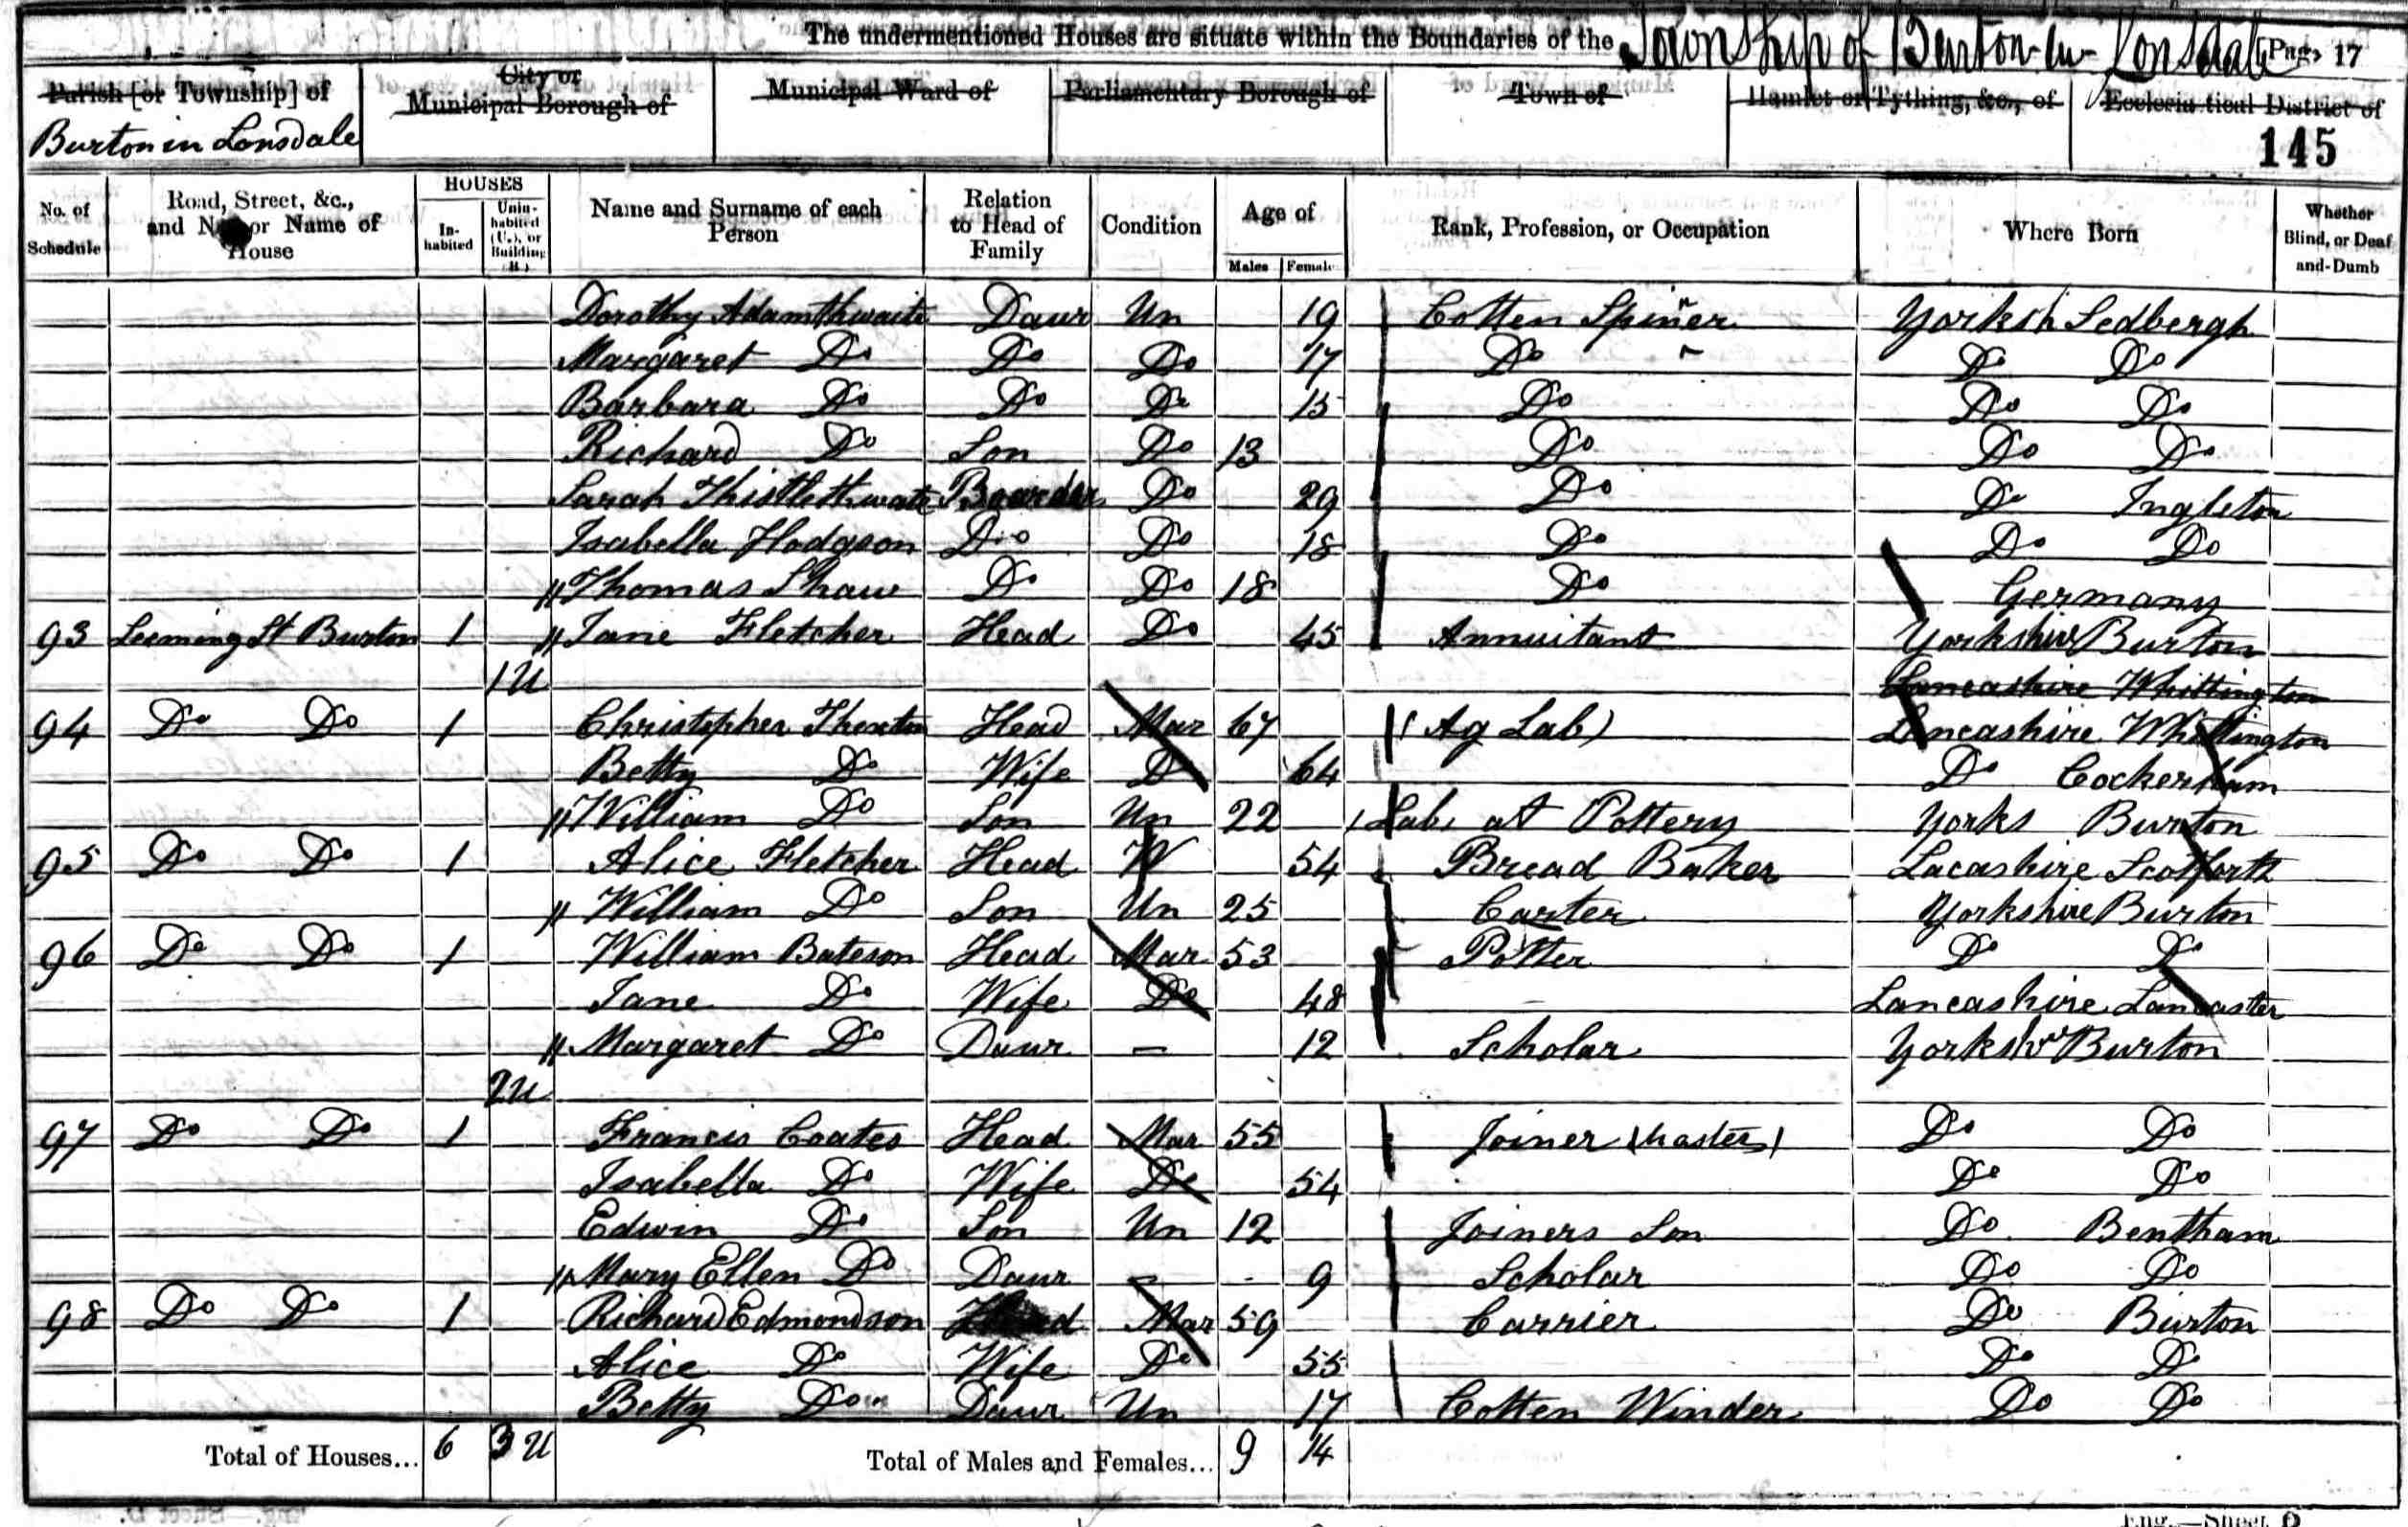 The undermentioned Houses are situate within the Boundaries of the Township of Burton-in-Lonsdale Page 17
Parish [or Township] of City or Municipal Borough of Municipal Ward of Parliamentary Borough of Town of Hamlet or Tything, &c., of Ecclesiastical District of
Burton in Lonsdale 145
No. of Schedule Road, Street, &c., and No. or Name of House HOUSES Inhabited Uninhabited (U.), or Building (B.) Name and Surname of each Person Relation to Head of Family Condition Age of Males Females Rank, Profession, or Occupation Where Born Whether Blind, or Deaf-and-Dumb
Dorothy Adamthwaite Daur Un 19 Cotten Spiner Yorksh Sedbergh
Margaret Do Do Do 17 Do Do Do
Barbara Do Do Do 15 Do Do Do
Richard Do Son Do 13 Do Do Do
Sarah Thistlethwate Boarder Do 29 Do Do Ingleton
Isabella Hodgson Do Do 18 Do Do Do
Thomas Shaw Do Do 18 Do Germany
93 Leeming St Burton 1 Jane Fletcher Head Do 45 Annuitant Yorkshire Burton
1U Lancashire Whittington
94 Do Do 1 Christopher Thexton Head Mar 67 (Ag Lab) Lancashire Whittington
Betty Do Wife Do 64 Do Cockerham
William Do Son Un 22 Lab at Pottery Yorks Burton
95 Do Do 1 Alice Fletcher Head W 54 Bread Baker Lacashire Scotforth
William Do Son Un 25 Carter Yorkshire Burton
96 Do Do 1 William Bateson Head Mar 53 Potter Do Do
Jane Do Wife Do 48 Lancashire Lancaster
Margaret Do Daur — 12 Scholar Yorkshr Burton
2U
97 Do Do 1 Francis Coates Head Mar 55 Joiner (master) Do Do
Isabella Do Wife Do 54 Do Do
Edwin Do Son Un 12 Joiners Son Do Bentham
Mary Ellen Do Daur - 9 Scholar Do Do
98 Do Do 1 Richard Edmondson Head Mar 59 Carrier Do Burton
Alice Do Wife Do 55 Do Do
Betty Do Daur Un 17 Cotten Winder Do Do
Total of Houses... 6 3 U Total of Males and Females... 9 14
Eng.—Sheet